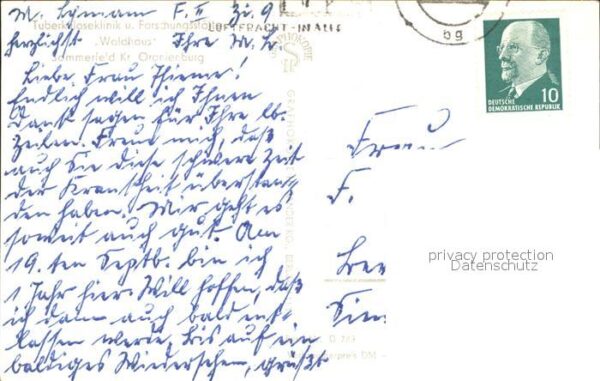 M. Lymann F. II Zi. 9
Tuberkuloseklinik u. Forschungsanstalt
herzlichst Ihre M. L.
„Waldhaus"
Sommerfeld Kr. Oranienburg
Liebe Frau Thieme!
Endlich will ich Ihnen
Dank sagen für Ihre lb.
Zeilen. Freue mich, daß
auch Sie diese schwere Zeit
der Krankheit überstan-
den haben. Mir geht es
soweit auch gut. Am
19. ten Septb. bin ich
1 Jahr hier. Will hoffen, daß
ich dann auch bald ent-
lassen werde, bis auf ein
baldiges Wiedersehen, grüßt
LUFTFRACHT - IN ALLE
bg
10
DEUTSCHE
DEMOKRATISCHE REPUBLIK
Frau
F.
privacy protection
Datenschutz